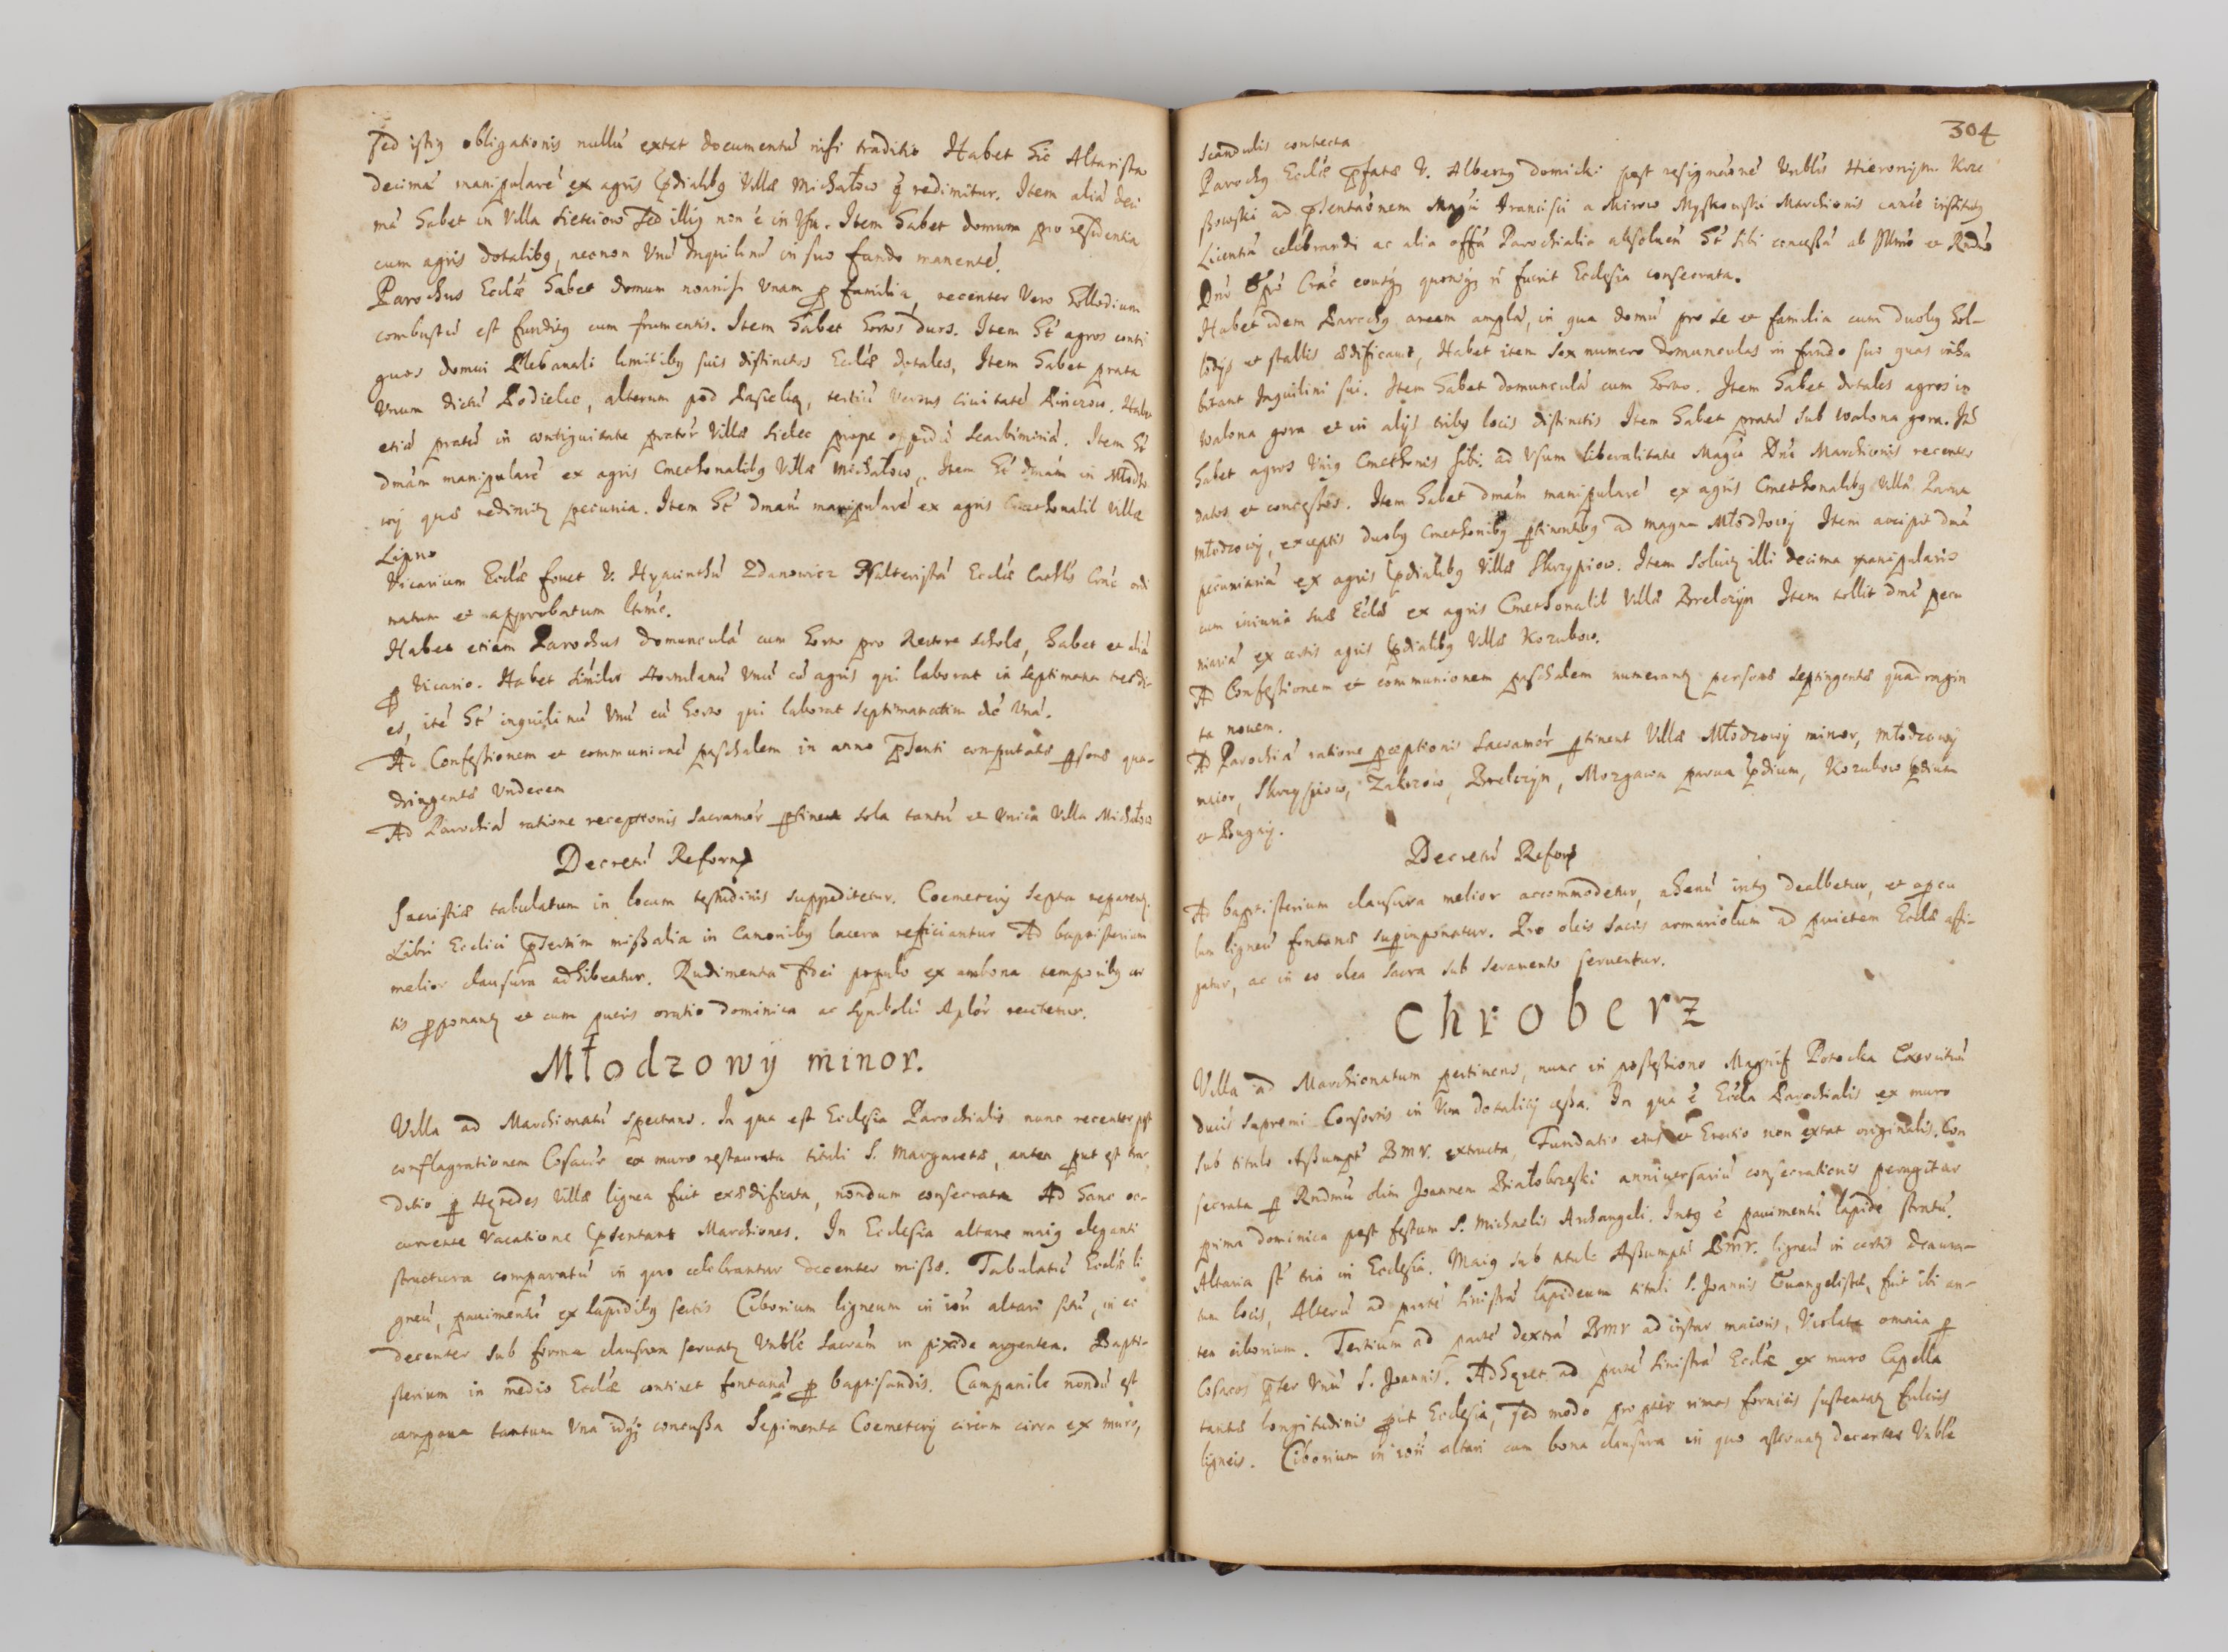 sed istiq obligationis nullũ extat documentũ nisi traditio Habet hic Altarista
decimã manipularẽ ex agris p̃dialibq Villæ Michałow q̃ redimitur. Item aliã deci
mã habet in Villa Sieciow sed illiq non ẽ in Usu. Item habet domum pro residentia
cum agris dotalibq, necnon Unũ Inquilinũ in suo fundo manentẽ.
Parochus Ecclæ habet domum nonnisi Unam p familia, recenter Vero Hollodium
combustũ est funditq cum frumentis. Item habet hortos duos. Item hẽt agros conti
guos domui Plebanali limitibq suis distinctos Ecclæ dotales, Item habet prata
Unum dictũ Podielec, alterum pod Pasieką, tertiũ Versus Civitatẽ Pinczow. Habet
etiã pratũ in contiguitate prator Villæ Sielec prope oppidũ Scarbimiriã. Item hẽt
dmãm manipularẽ ex agris Cmethonalibq Villæ Michałow. Item hẽt dmãm in Młodzo
wy quæ redimitʒ pecunia. Item hẽt dmãm manipularẽ ex agris Cmethonalib Villæ
Lipno
Vicarium Ecclæ fovet V. Hyacinthũ Zdanowicz Psalteristã Ecclæ Cathlis Crac ordi
natum et approbatum ltime.
Habet etiam Parochus domunculã cum horto pro Rectore scholæ, habet et aliã
p Vicario. Habet similr Hortulanũ Unũ cũ agris qui laborat in septimana tres di-
es, itẽ hẽt inquilinũ Unũ cũ horto qui laborat septimanatim diẽ Unã.
Ad Confessionem et communionẽ paschalem in anno p̃senti computatæ psonæ qua-
dringentæ Undecem
Ad Parochiã ratione receptionis Sacramor ptinent sola tantũ et Unica Villa Michałow
Decretũ Reform
Sacristiæ tabulatum in locum testudinis suppeditetur. Coemeterij septa reparentʒ.
Libri Ecclici p̃sertim missalia in Canonibq lacera reficiantur Ad baptisterium
melior clausura adhibeatur. Rudimenta fidei populo ex ambona temporibq cer
tis pponantʒ et cum pueris oratio dominica ac Symbolũ Aplor recitetur.
Młodzowy minor.
Villa ad Marchionatũ spectans. In qua est Ecclesia Parochialis nunc recenter pst
conflagrationem Cosacor ex muro restaurata tituli S. Margaretæ, antea put est tra-
ditio p Hæredes Villæ lignea fuit exædificata, nondum consecrata Ad hanc oc-
currente Vacatione p̃sentant Marchiones. In Ecclesia altare maiq eleganti
structura comparatũ in quo celebrantur decenter missæ. Tabulatũ Ecclæ li
gneũ, pavimentũ ex lapidibq sectis Ciborium ligneum in iori altari sitũ, in eo
decenter sub forma clausura servatʒ Vnble Sacrãm in pixide argentea. Bapti-
sterium in medio Ecclæ continet fontanã p baptisandis. Campanile nondũ est
campana tantum Una idqʒ concussa Sepimenta Coemeterij circum circa ex muro,
304
scandulis contecta
Parochq Ecclæ p̃fatæ V. Albertq Domicki post resignaõnẽ Vnblis Hieronym Korc
zowski ad p̃sentaõnem Magci Francisci a Mirow Myszkowski Marchionis canõe institutq
Licentiã celebrandi ac alia offa Parochialia absolven hẽt sibi concessã ab Illmo et Rndo
Dno Epo Crac eousqʒ quousqʒ ñ fuerit Ecclesia consecrata.
Habet idem Parochq aream amplã, in qua domũ pro se et familia cum duobq hol-
lodijs et stallis ædificavit, Habet item sex numero domunculas in fundo suo quas inha
bitant Inquilini sui. Item habet domunculã cum horto. Item habet dotales agros in
walona gora et in alijs tribq locis distinctis Item habet pratũ sub walona gora. Itẽ
habet agros Uniq Cmethonis sibi ad Usum liberalitate Magci Dni Marchionis recenter
datos et concessos. Item habet dmãm manipularẽ ex agris Cmethonalibq Villæ Parva
Młodzowy, exceptis duobq Cmethonibq ptinentibq ad magna Młodzowy Item accipit dmã
pecuniariã ex agris p̃dialibq Villæ Skrzypiow. Item solvitʒ illi decima manipularis
cum iniuria suæ Ecclæ ex agris Cmethonalib Villæ Brelczyn Item tollit dmã pecu
niariã ex certis agris p̃dialibq Villæ Kozubow.
Ad Confessionem et communionem paschalem numerantʒ personæ septingentæ quadragin
ta novem.
Ad Parochiã ratione pceptionis Sacramor ptinent Villæ Młodzowy minor, Młodzowy
maior, Skrzypiow, Zakrzow, Brelczyn, Mozgawa parva p̃dium, Kozubow p̃dium
et Bugay.
Decretũ Reform
Ad baptisterium clausura melior accommodetur, ahenũ intq dealbetur, et opcu
lum ligneũ fontanæ supimponatur. Pro oleis sacris armariolum ad parietem Ecclæ affi-
gatur, ac in eo olea sacra sub seramento serventur.
Chroberz
Villa ad Marchionatum pertinens, nunc in possessione Magnif Potocka Exercituũ
ducis supremi Consortis in Vim dotalitij cessa. In qua ẽ Eccla Parochialis ex muro
sub titulo Assumpt BMV. extructa, Fundatio eius et Erectio non extat originalis. Con
secrata p Rndmũ olim Joannem Białobrzeski anniversariũ consecrationis peragitur
prima dominica post festum S. Michaelis Archangeli. Intq ẽ pavimentũ lapide stratũ.
Altaria sũt tria in Ecclesia. Maiq sub titulo Assumpt BMV. ligneũ in certis deaura-
tum locis, Alterũ ad partẽ sinistrã lapideum tituli S. Joannis Evangelistæ, fuit ibi an-
tea ciborium. Tertium ad partẽ dextrã BMV ad instar maioris, Violata omnia p
Cosacos p̃ter Unũ S. Joannis. Adhæret ad partẽ sinistrã Ecclæ ex muro Capella
tantæ longitudinis put Ecclesia, sed modo propter rimas fornicis sustentatʒ fulcris
ligneis. Ciborium in iori altari cum bona clausura in quo asservatʒ decenter Vnble